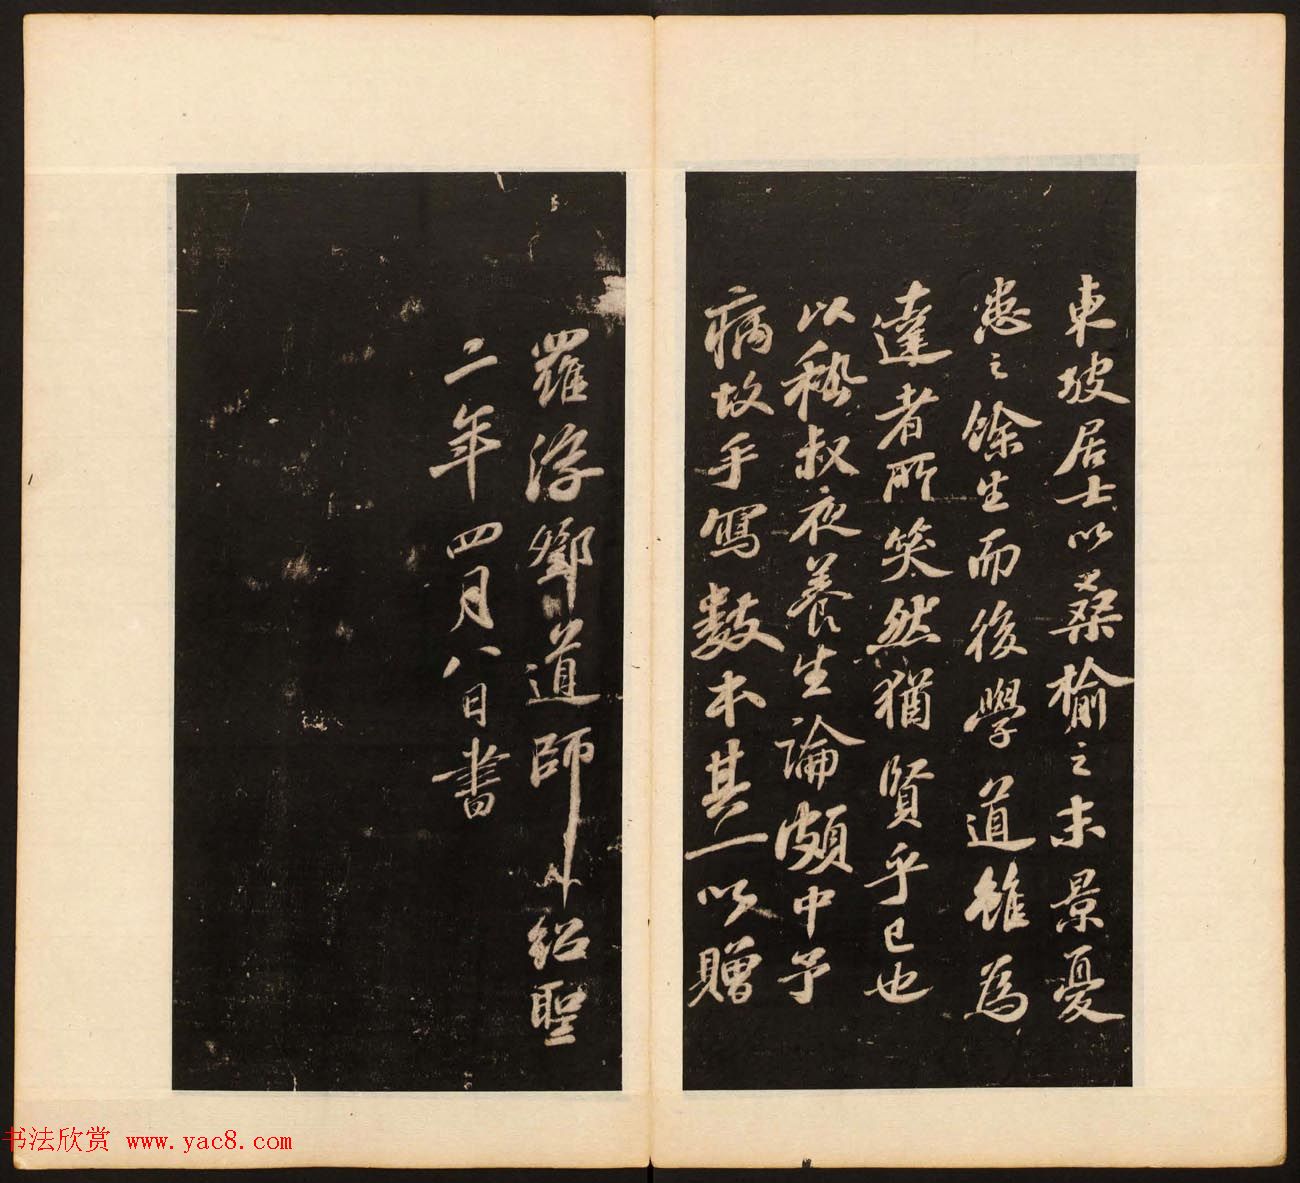 東坡居士以桑榆之末景憂
患之餘生而後學道雖為
達者所笑然猶賢乎已也
以嵇叔夜養生論頗中予
病故手寫數本其一以贈
羅浮鄧道師紹聖
二年四月八日書
书法欣赏 www.yac8.com